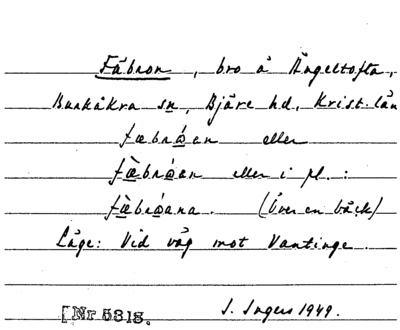 Fäbron, bro å Ängeltofta,
Barkåkra sn, Bjäre hd, Krist. län
fæbrǿan eller
fæ̀brǿan eller i pl.:
fæ̀brǿana. (Över en bäck)
Läge: Vid väg mot Vantinge.
[Nr 5318. J. Ingers 1949.